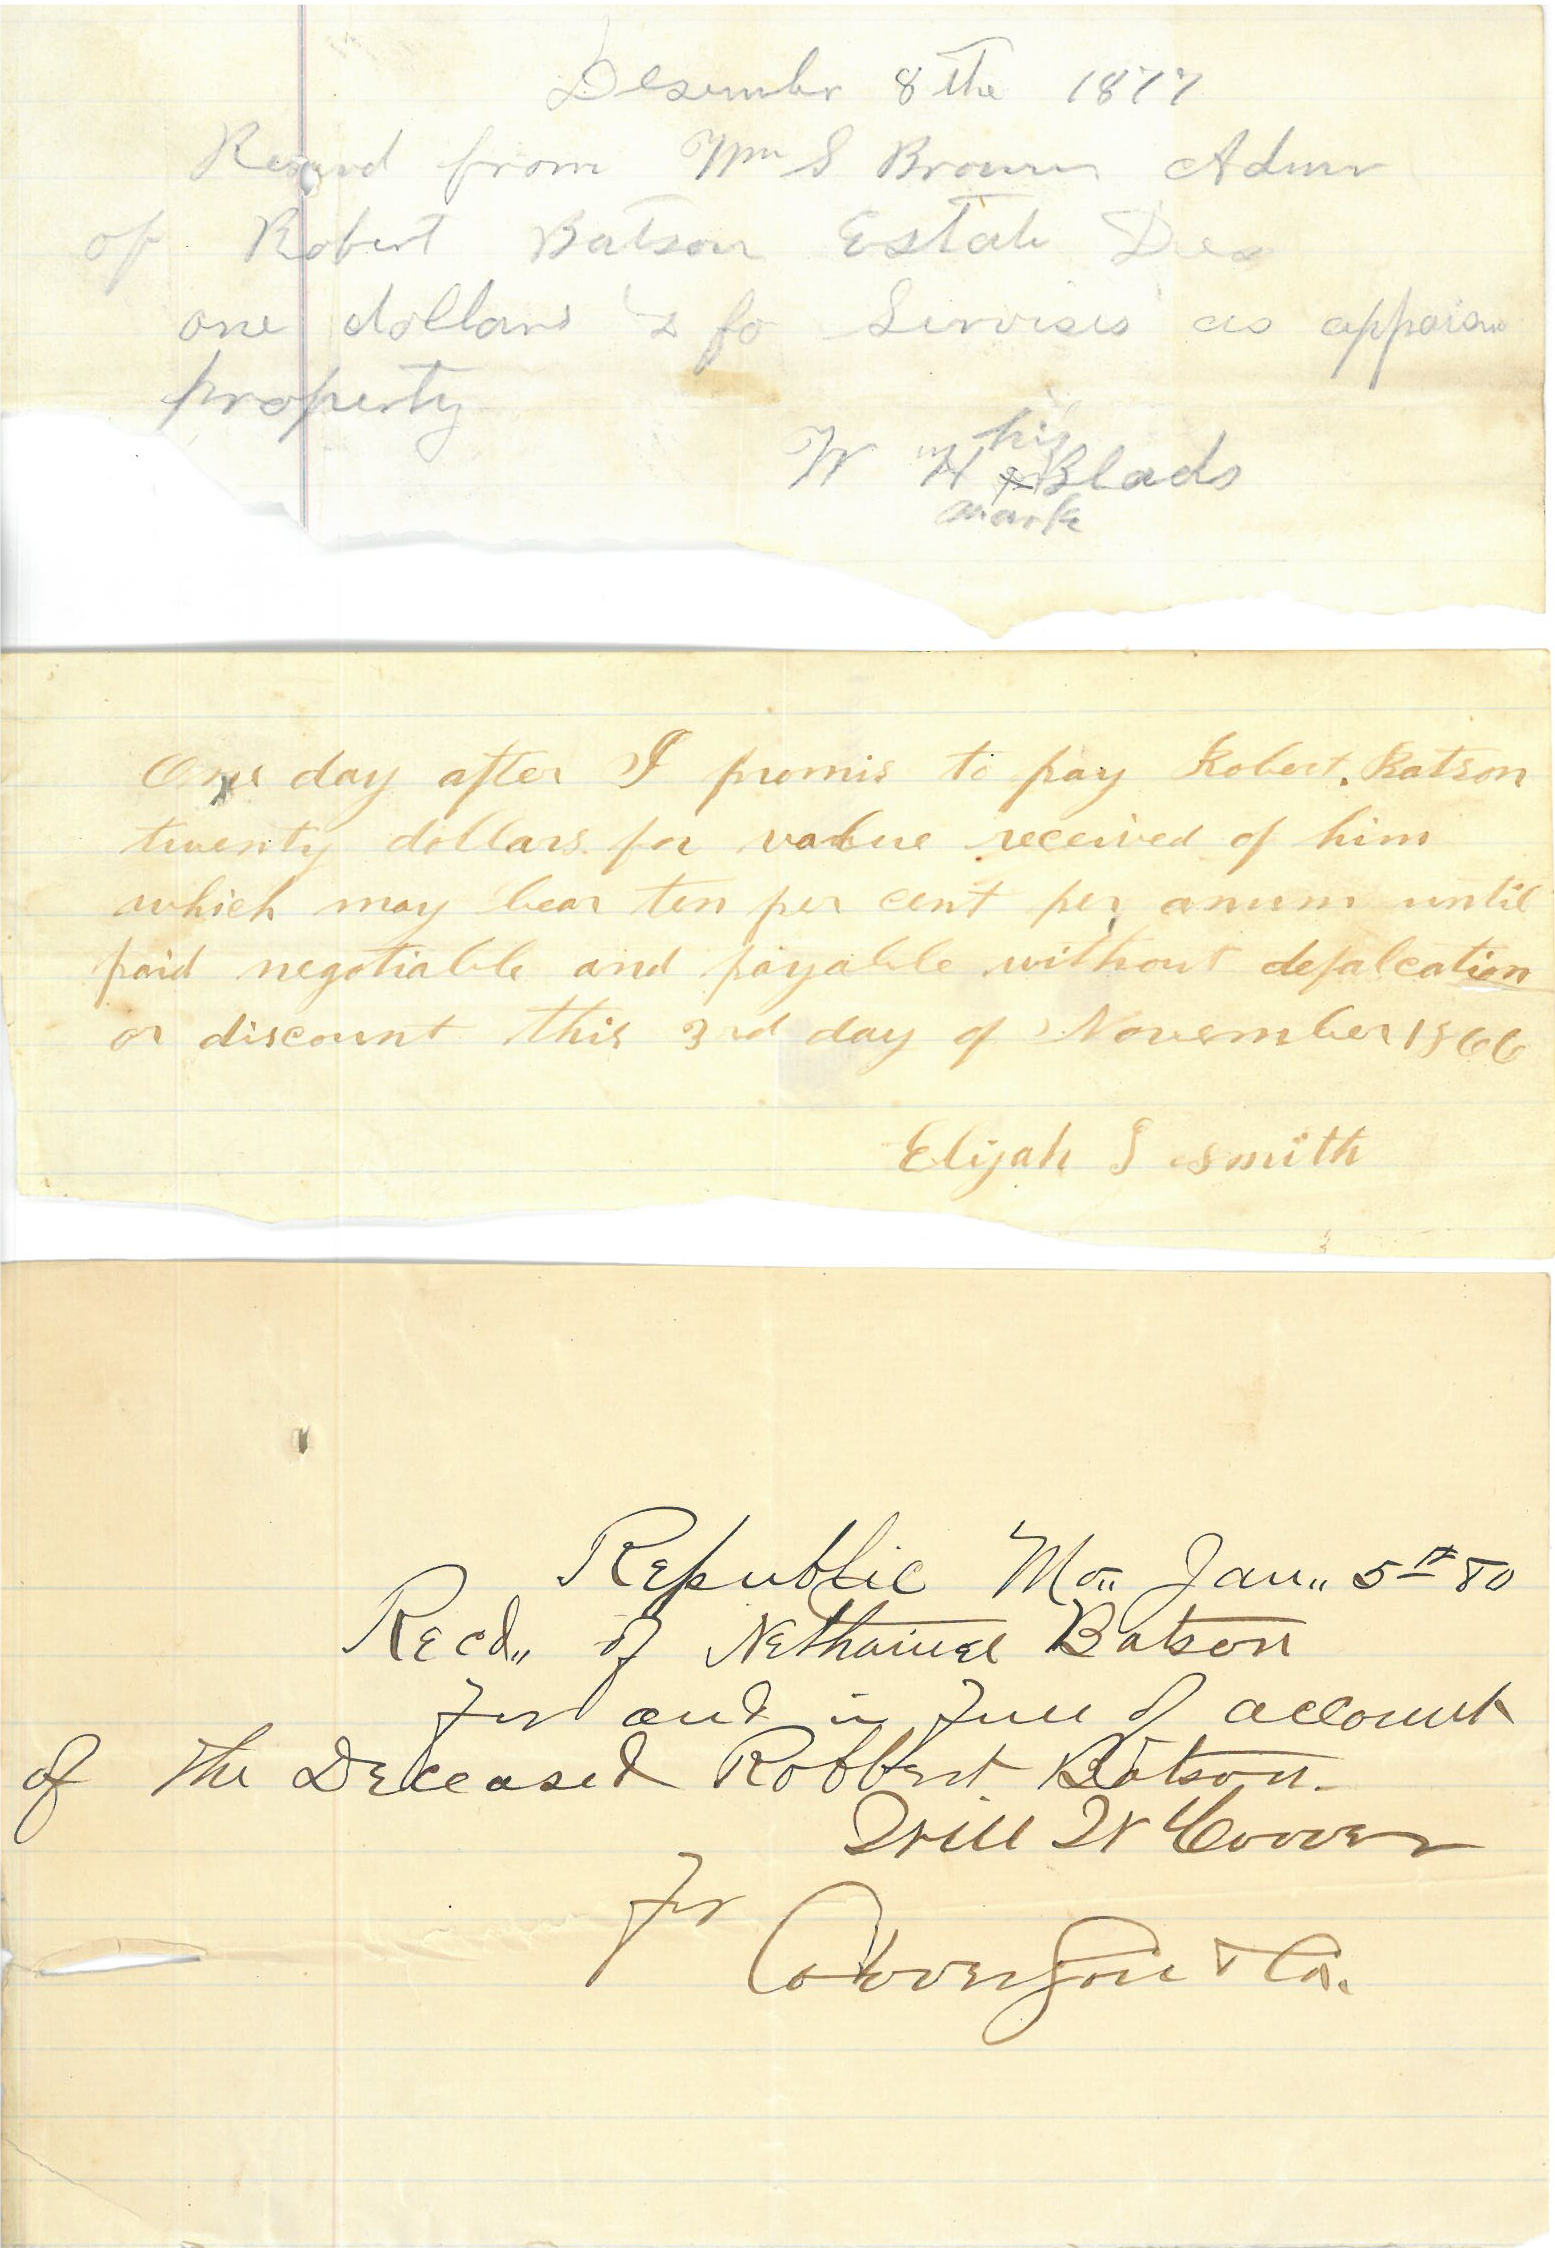 Desember 8 the 1877
from Wm S Brown Admr
of Robert Batson Estate Des
one dollars fo Servises as
property
his
W H x Blads
mark
One day after I promis to pay Robert. Batson
twenty dollars for value received of him
which may bear ten per cent per anum until
paid negotiable and payable without defalcation
or discount this 3rd day of November 1866
Elijah S smith
Republic Mo,, Jan,, 5th 80
Recd,, of Nethaniel Batson
for and in full of account
of the Deceased Robbert Batson.
Will W Coover
for
& Co.